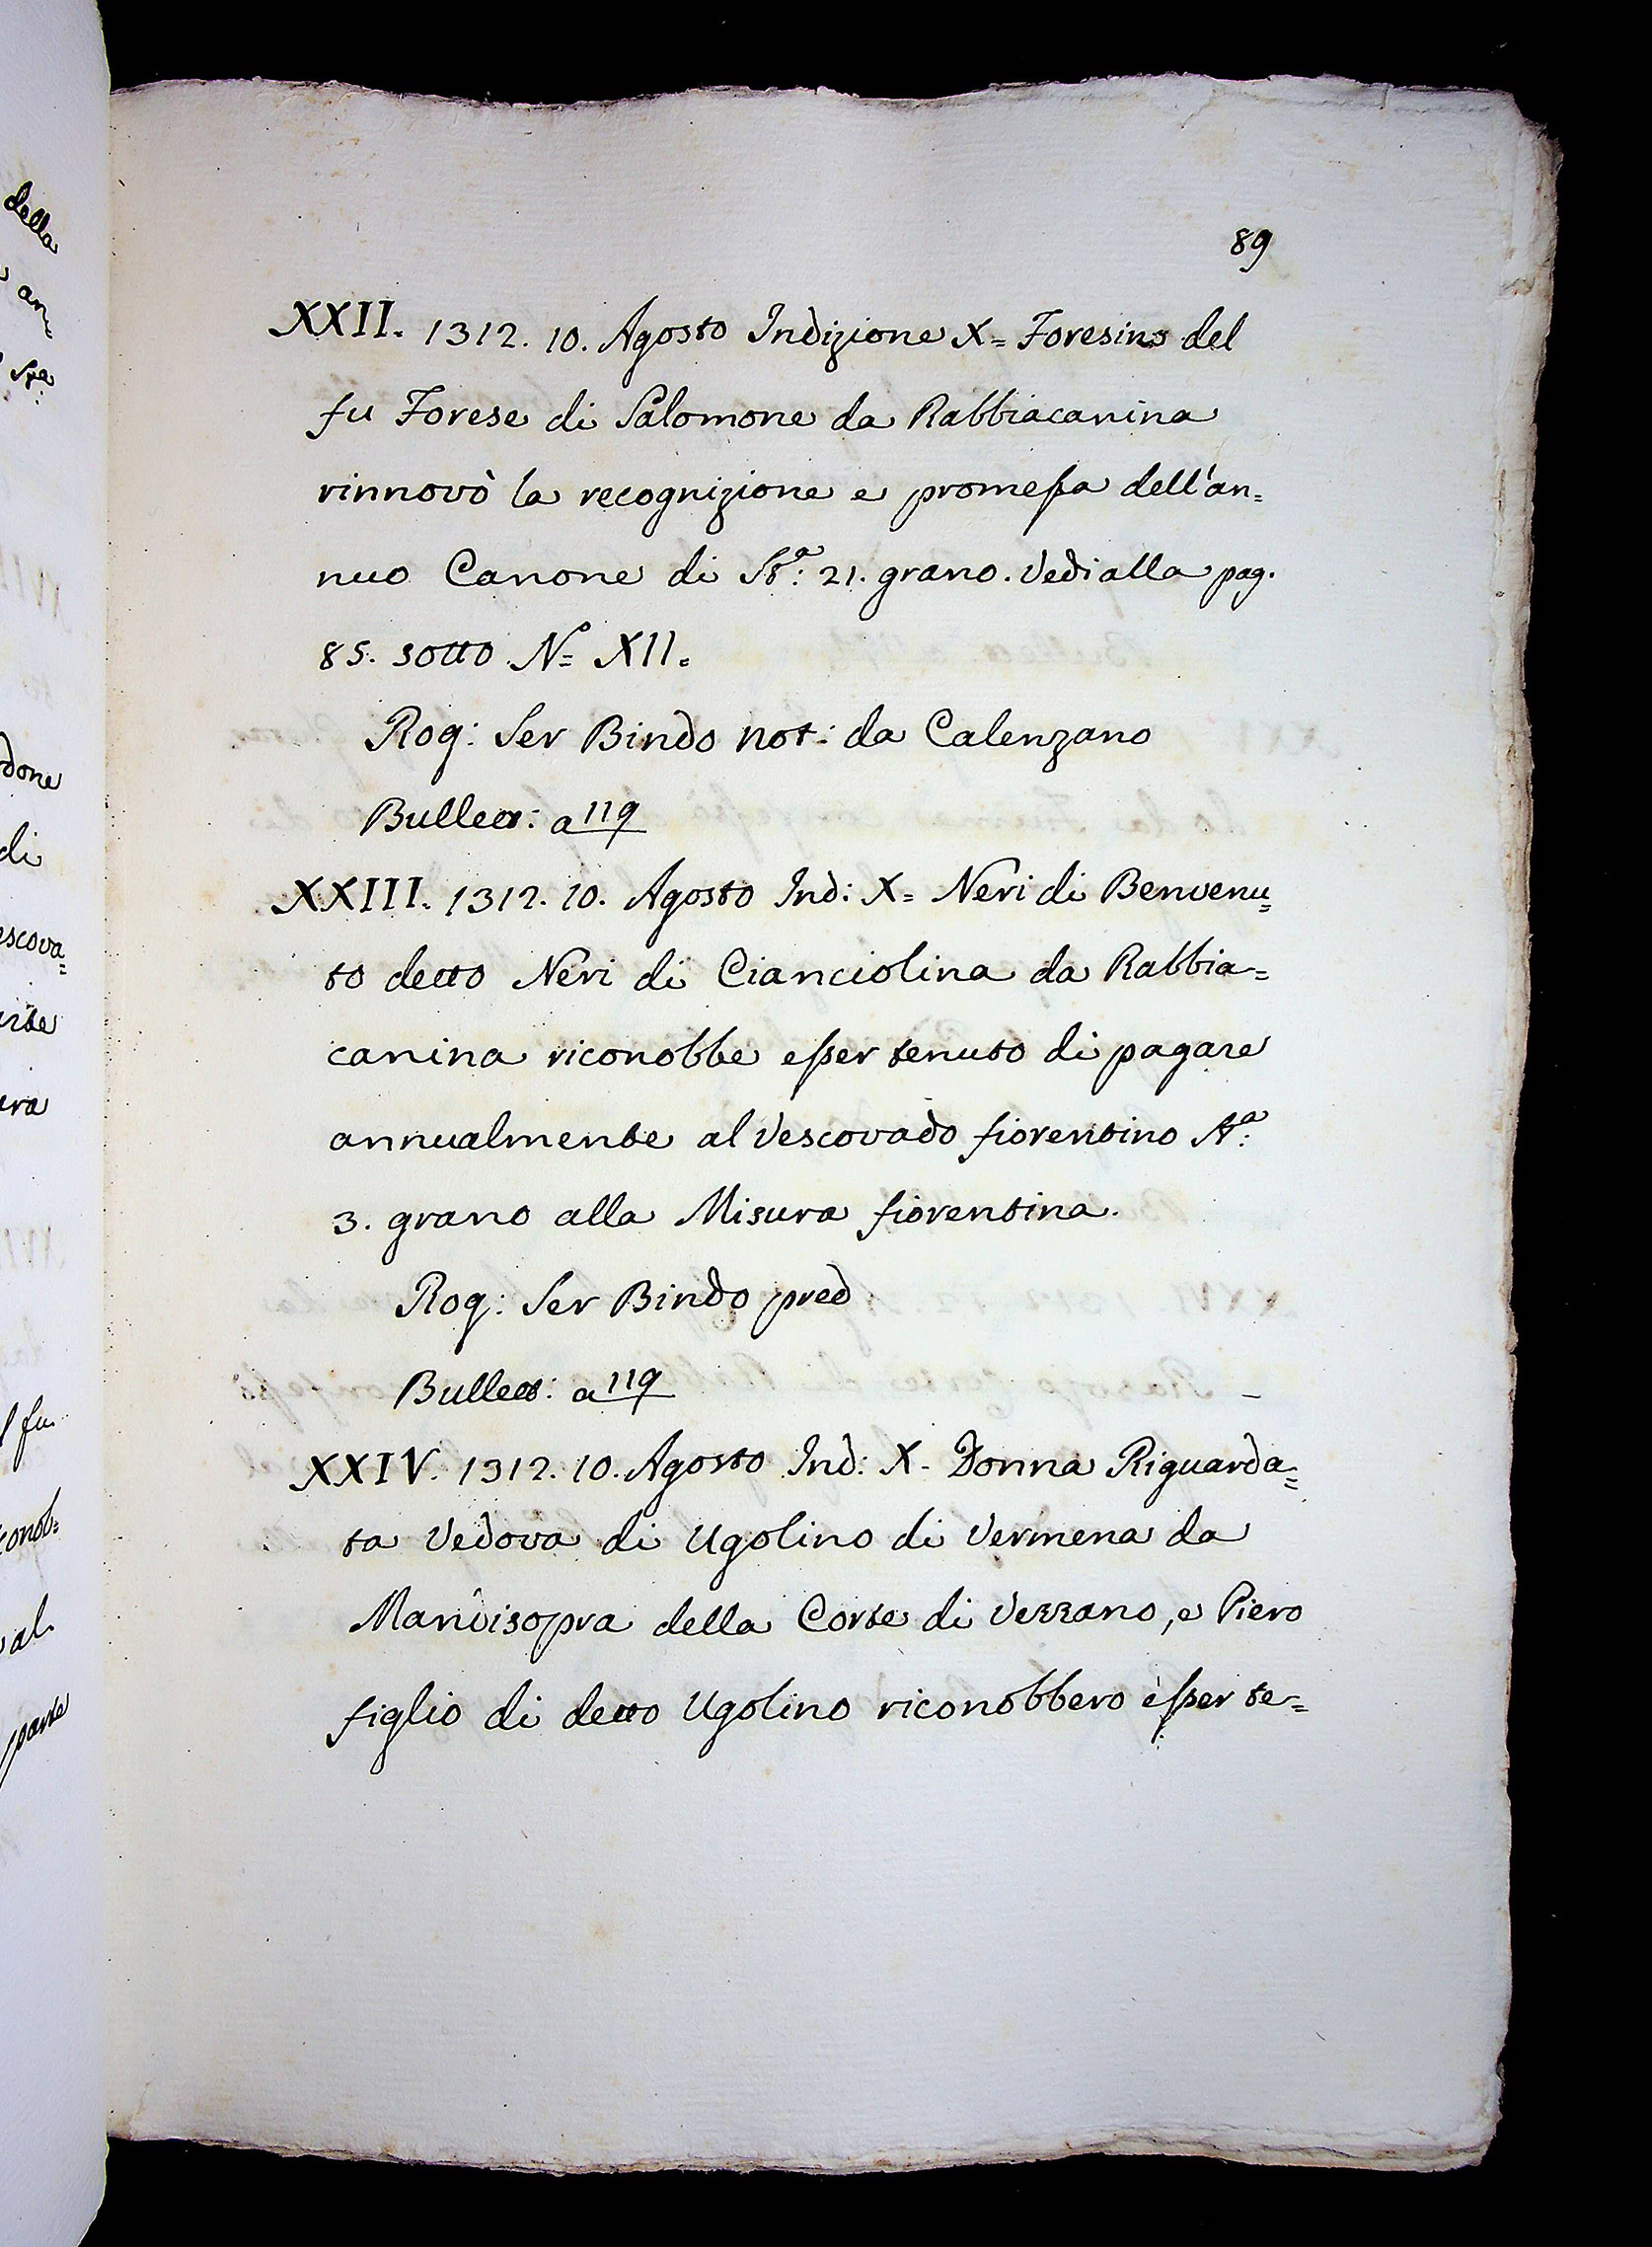 89
XXII. 1312. 10. Agosto Indizione X= Foresino del
fu Forese di Salomone da Rabbiacanina
rinnovò la recognizione e promessa dell'an=
nuo Canone di Stª: 21. grano. Vedi alla pag.
85. sotto Nº= XII.
Rog: Ser Bindo not: da Calenzano
Bullett: a 119
XXIII. 1312. 10. Agosto Ind: X= Neri di Benvenu=
to detto Neri di Cianciolina da Rabbia=
canina riconobbe esser tenuto di pagare
annualmente al Vescovado fiorentino Stª:
3. grano alla Misura fiorentina.
Rog: Ser Bindo pred
Bullett: a 119
XXIV. 1312. 10. Agosto Ind: X. Donna Riguarda=
ta Vedova di Ugolino di Vermena da
Mandisopra della Corte di Vezzano, e Piero
figlio di detto Ugolino riconobbero esser te=
della
an=
Sta:
done
di
escova=
era
l fu
conob=
al
parte